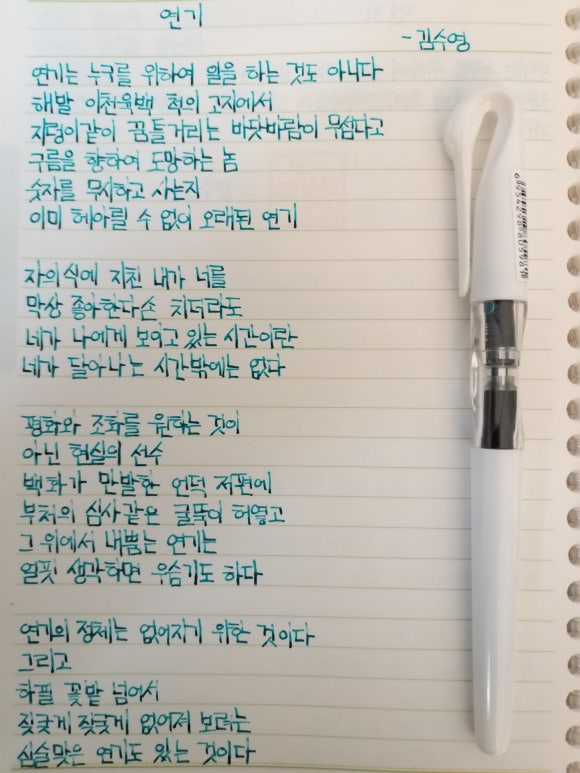 연기
-김수영
연기는 누구를 위하여 일을 하는 것도 아니다
해발 이천육백 척의 고지에서
지렁이같이 꿈틀거리는 바닷바람이 무섭다고
구름을 향하여 도망하는 놈
숫자를 무시하고 사는지
이미 헤아릴 수 없이 오래된 연기
자의식에 지친 내가 너를
막상 좋아한다손 치더라도
네가 나에게 보이고 있는 시간이란
네가 달아나는 시간밖에는 없다
평화와 조화를 원하는 것이
아닌 현실의 선수
백화가 만발한 언덕 저편에
부처의 심사같은 굴뚝이 허옇고
그 위에서 내뿜는 연기는
얼핏 생각하면 우습기도 하다
연기의 정체는 없어지기 위한 것이다
그리고
하필 꽃밭 넘어서
짖궂게 짖궂게 없어져 보려는
심술맞은 연기도 있는 것이다